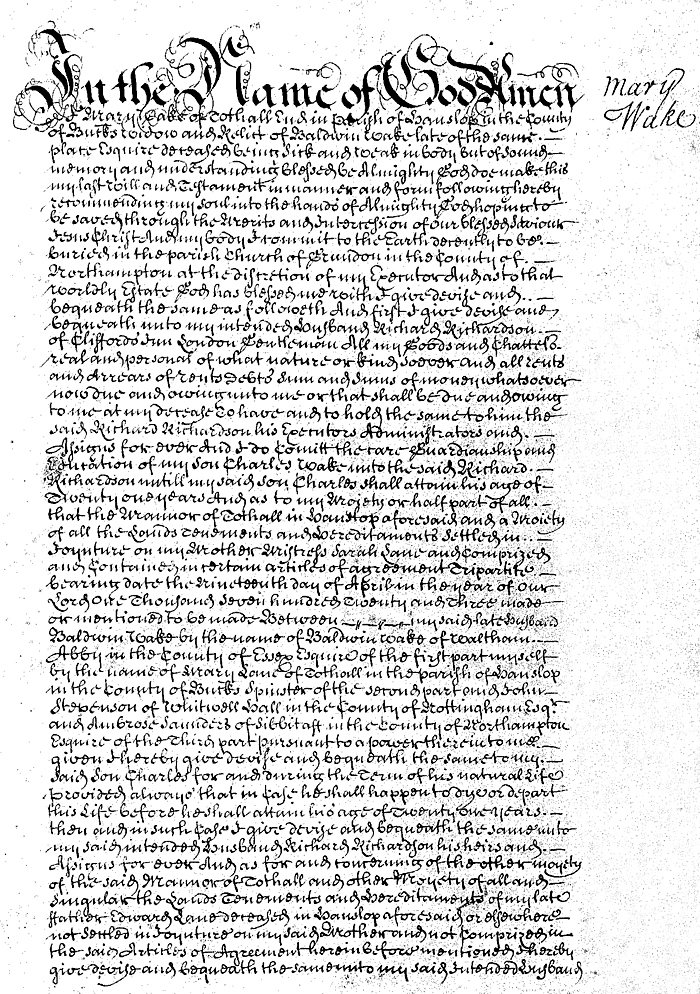 In the Name of God Amen
Mary
Wake
I Mary Wake of Tothall End in Parish of Hanslop in the County
of Bucks Widow and Relict of Baldwin Wake late of the same
place Esquire deceased being Sick and Weak in body but of Sound
memory and understanding blessed be Almighty God doe make this
my last Will and Testament in manner and form following hereby
recommending my soul into the hands of Almighty God hoping to
be saved through the Merits and Intercession of our blessed Saviour
Jesus Christ And my body I commit to the Earth decently to be
buried in the parish Church of Grendon in the County of
Northampton at the discretion of my Executor And as to that
worldly Estate God has blessed me with I give devise and
bequeath the same as followeth And first I give devise and
bequeath unto my intended Husband Richard Richardson
of Cliffords Inn London Gentleman All my Goods and Chattels
real and personal of what nature or kind soever and all rents
and Arrears of rents Debts Sum and Sums of money whatsoever
now due and owing unto me or that shall be due and owing
to me at my decease To have and to hold the same to him the
said Richard Richardson his Executors Administrators and
Assigns for ever And I do Comitt the care Guardianship and
Education of my son Charles Wake unto the said Richard
Richardson untill my said son Charles shall attain his age of
Twenty one years And as to my Moiety or half part of all
that the Mannor of Tothall in Hanslop aforesaid and a Moiety
of all the Lands Tenements and Hereditaments Settled in
Joynture on my Mother Mistress Sarah Lane and Comprized
and Contained in certain articles of agreement Tripartite
bearing date the Nineteenth day of April in the year of our
Lord One Thousand Seven hundred Twenty and Three made
or mentioned to be made Between my said late Husband
Baldwin Wake by the name of Baldwin Wake of Waltham
Abby in the County of Essex Esquire of the first part myself
by the name of Mary Lane of Tothall in the parish of Hanslop
in the County of Bucks Spinster of the second part and John
Stepenson of Whitwell Hall in the County of Nottingham Esqr.
and Ambrose Saunders of Sibbitaft in the County of Northampton
Esquire of the Third part pursuant to a power therein to me
given I hereby give devise and bequeath the same to my
Said Son Charles for and during the Term of his natural Life
Provided always that in Case he shall happen to dye or depart
this Life before he shall attain his age of Twenty one years
then and in such Case I give devise and bequeath the same unto
my said intended Husband Richard Richardson his heirs and
Assigns for ever And as for and concerning of the other moyety
of the said Mannor of Tothall and other Moyety of all and
singular the Lands Tenements and Hereditaments of my late
Father Edward Lane deceased in Hanslop aforesaid or elsewhere
not Settled in Joynture on my said Mother and not Comprized in
the said Articles of Agreement herein before mentioned I hereby
give devise and bequeath the same unto my said Intended Husband